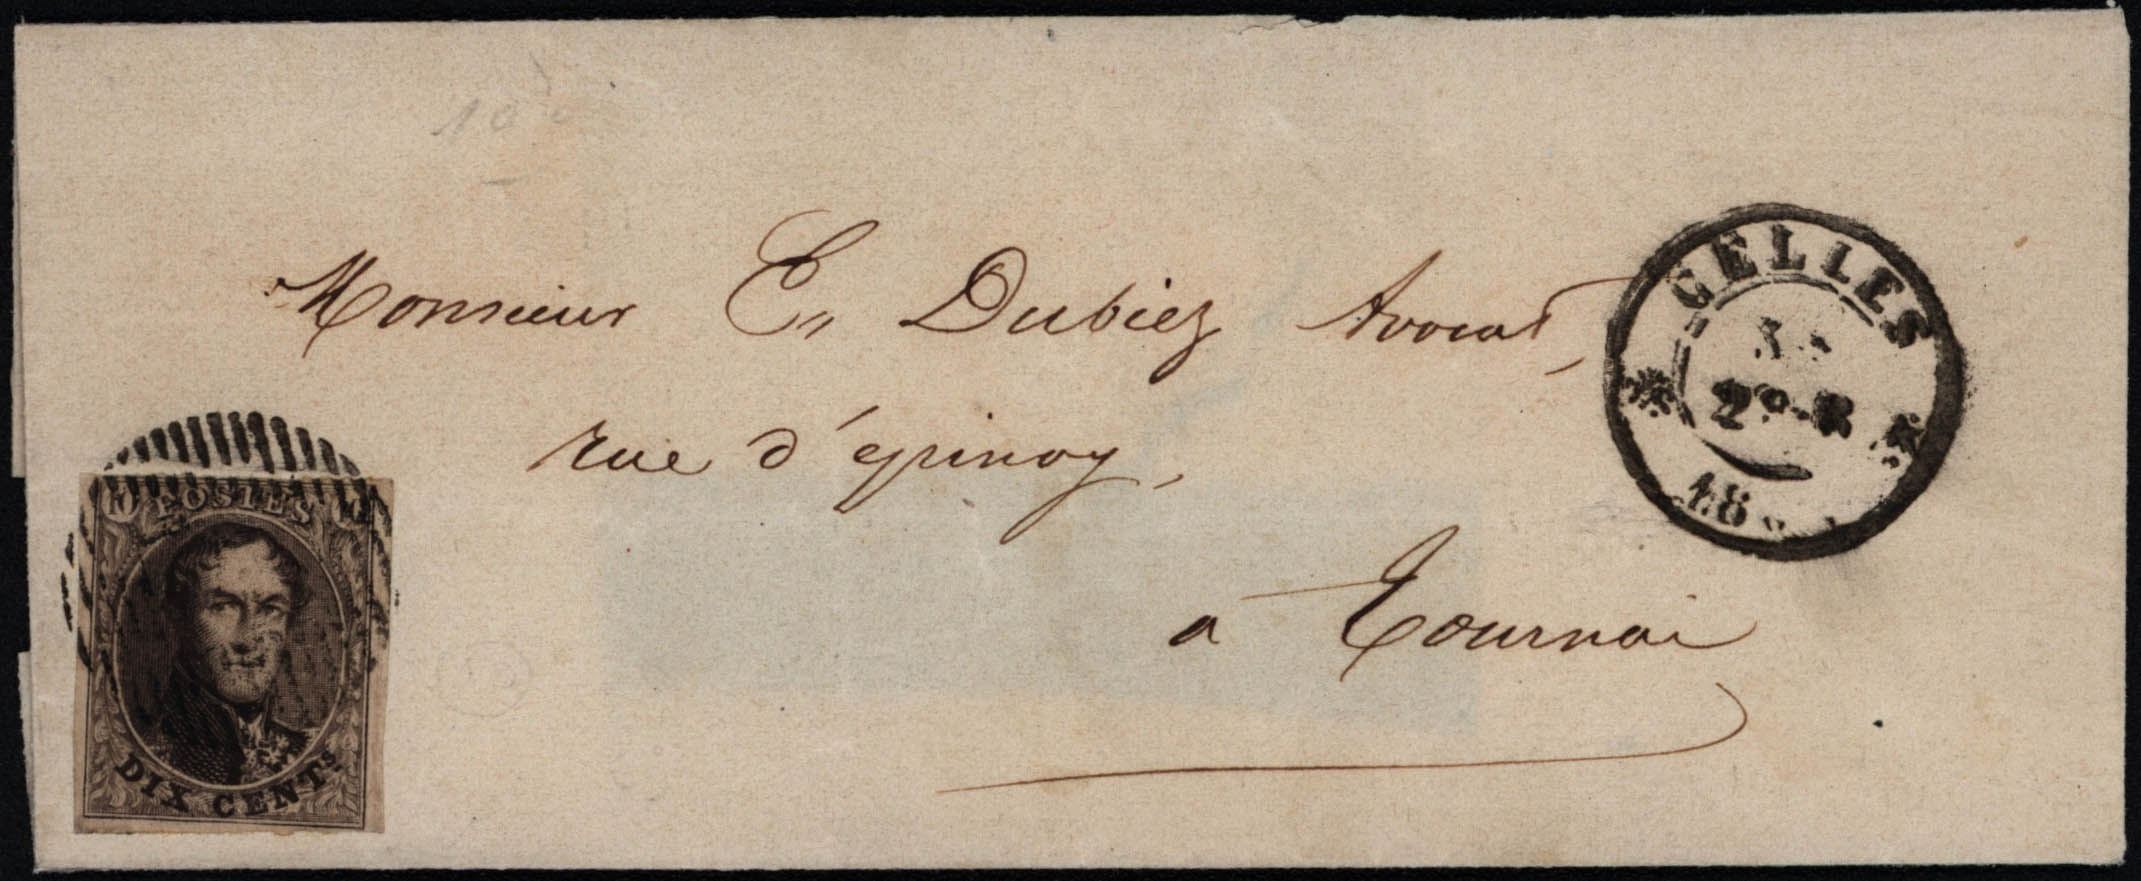 Monsieur E,, Dubiez Avocat,
rue d'épinoy,
a Tournai
CELLES
2º-8
18
10 POSTES 10
DIX CENTS